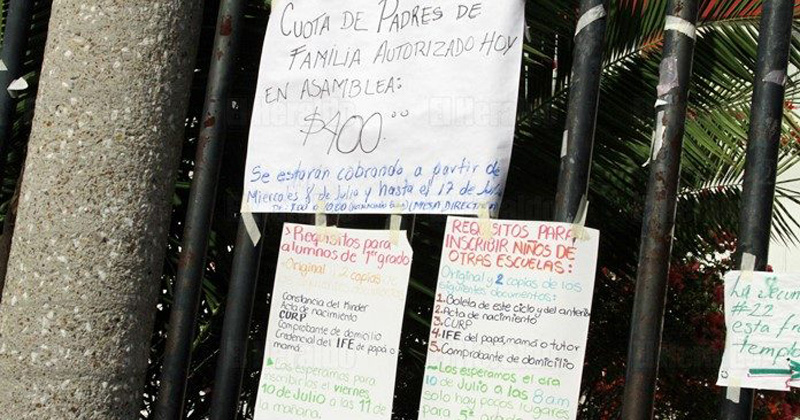 Cuota de Padres de
Familia Autorizado Hoy
en Asamblea:
$400.00
Se estarán cobrando a partir de
Miercoles 8 de Julio y hasta el 17 de Julio
(MESA DIRECTIVA
> Requisitos para
alumnos de 1er grado
Original 2 copias
Constancia del Kinder
Acta de nacimiento
CURP
Comprobante de domicilio
Credencial del IFE de papá o
mamá.
Los esperamos para
inscribirlos el viernes
10 de Julio a las 11 de
la mañana.
REQISITOS PARA
INSCRIBIR NIÑOS DE
OTRAS ESCUELAS:
Original y 2 copias de los
siguientes documentos:
1. Boleta de este ciclo y del anterior
2. Acta de nacimiento
3. CURP
4. IFE del papá, mamá o tutor
5. Comprobante de domicilio
Los esperamos el día
10 de Julio a las 8 am
solo hay pocos lugares
para 5°
La Secun
#22
esta fre
templo